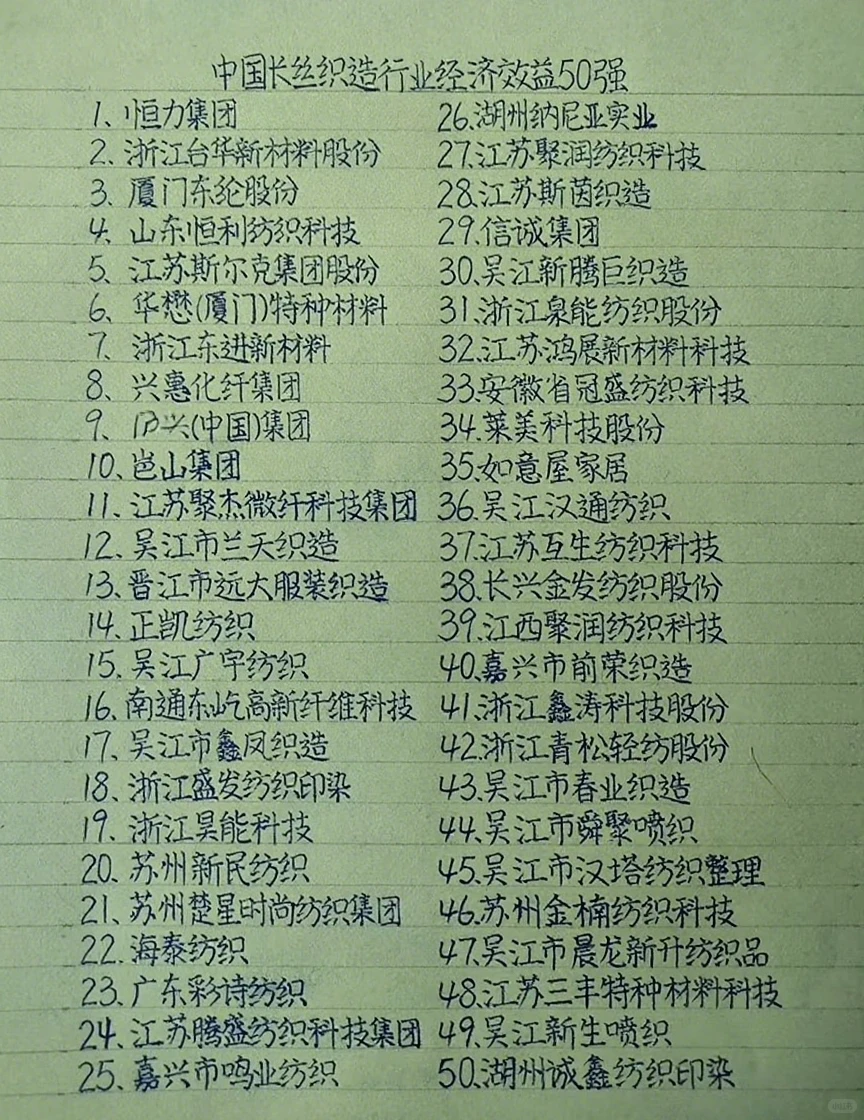 中国长丝织造行业经济效益50强
1、恒力集团
2、浙江台华新材料股份
3、厦门东纶股份
4、山东恒利纺织科技
5、江苏斯尔克集团股份
6、华懋(厦门)特种材料
7、浙江东进新材料
8、兴惠化纤集团
9、(中国)集团
10、岜山集团
11、江苏聚杰微纤科技集团
12、吴江市兰天织造
13、晋江市远大服装织造
14、正凯纺织
15、吴江广宇纺织
16、南通东屹高新纤维科技
17、吴江市鑫凤织造
18、浙江盛发纺织印染
19、浙江昊能科技
20、苏州新民纺织
21、苏州楚星时尚纺织集团
22、海泰纺织
23、广东彩诗纺织
24、江苏腾盛纺织科技集团
25、嘉兴市鸣业纺织
26、湖州纳尼亚实业
27、江苏聚润纺织科技
28、江苏斯茵织造
29、信诚集团
30、吴江新腾巨织造
31、浙江泉能纺织股份
32、江苏鸿展新材料科技
33、安徽省冠盛纺织科技
34、莱美科技股份
35、如意屋家居
36、吴江汉通纺织
37、江苏互生纺织科技
38、长兴金发纺织股份
39、江西聚润纺织科技
40、嘉兴市前荣织造
41、浙江鑫涛科技股份
42、浙江青松轻纺股份
43、吴江市春业织造
44、吴江市舜聚喷织
45、吴江市汉塔纺织整理
46、苏州金楠纺织科技
47、吴江市晨龙新升纺织品
48、江苏三丰特种材料科技
49、吴江新生喷织
50、湖州诚鑫纺织印染